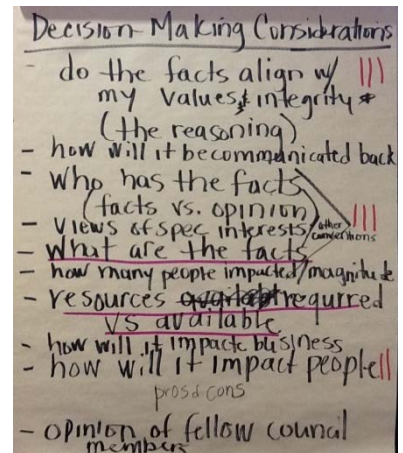 Decision Making Considerations
- do the facts align w/ |||
my values & integrity *
(the reasoning)
- how will it be communicated back
- Who has the facts
(facts vs. opinion) |||
- Views of spec interests / other
- What are the facts
- how many people impacted/magnitude
- resources required
vs available
- how will it impact business
- how will it impact people ||
pros & cons
- opinion of fellow council
members